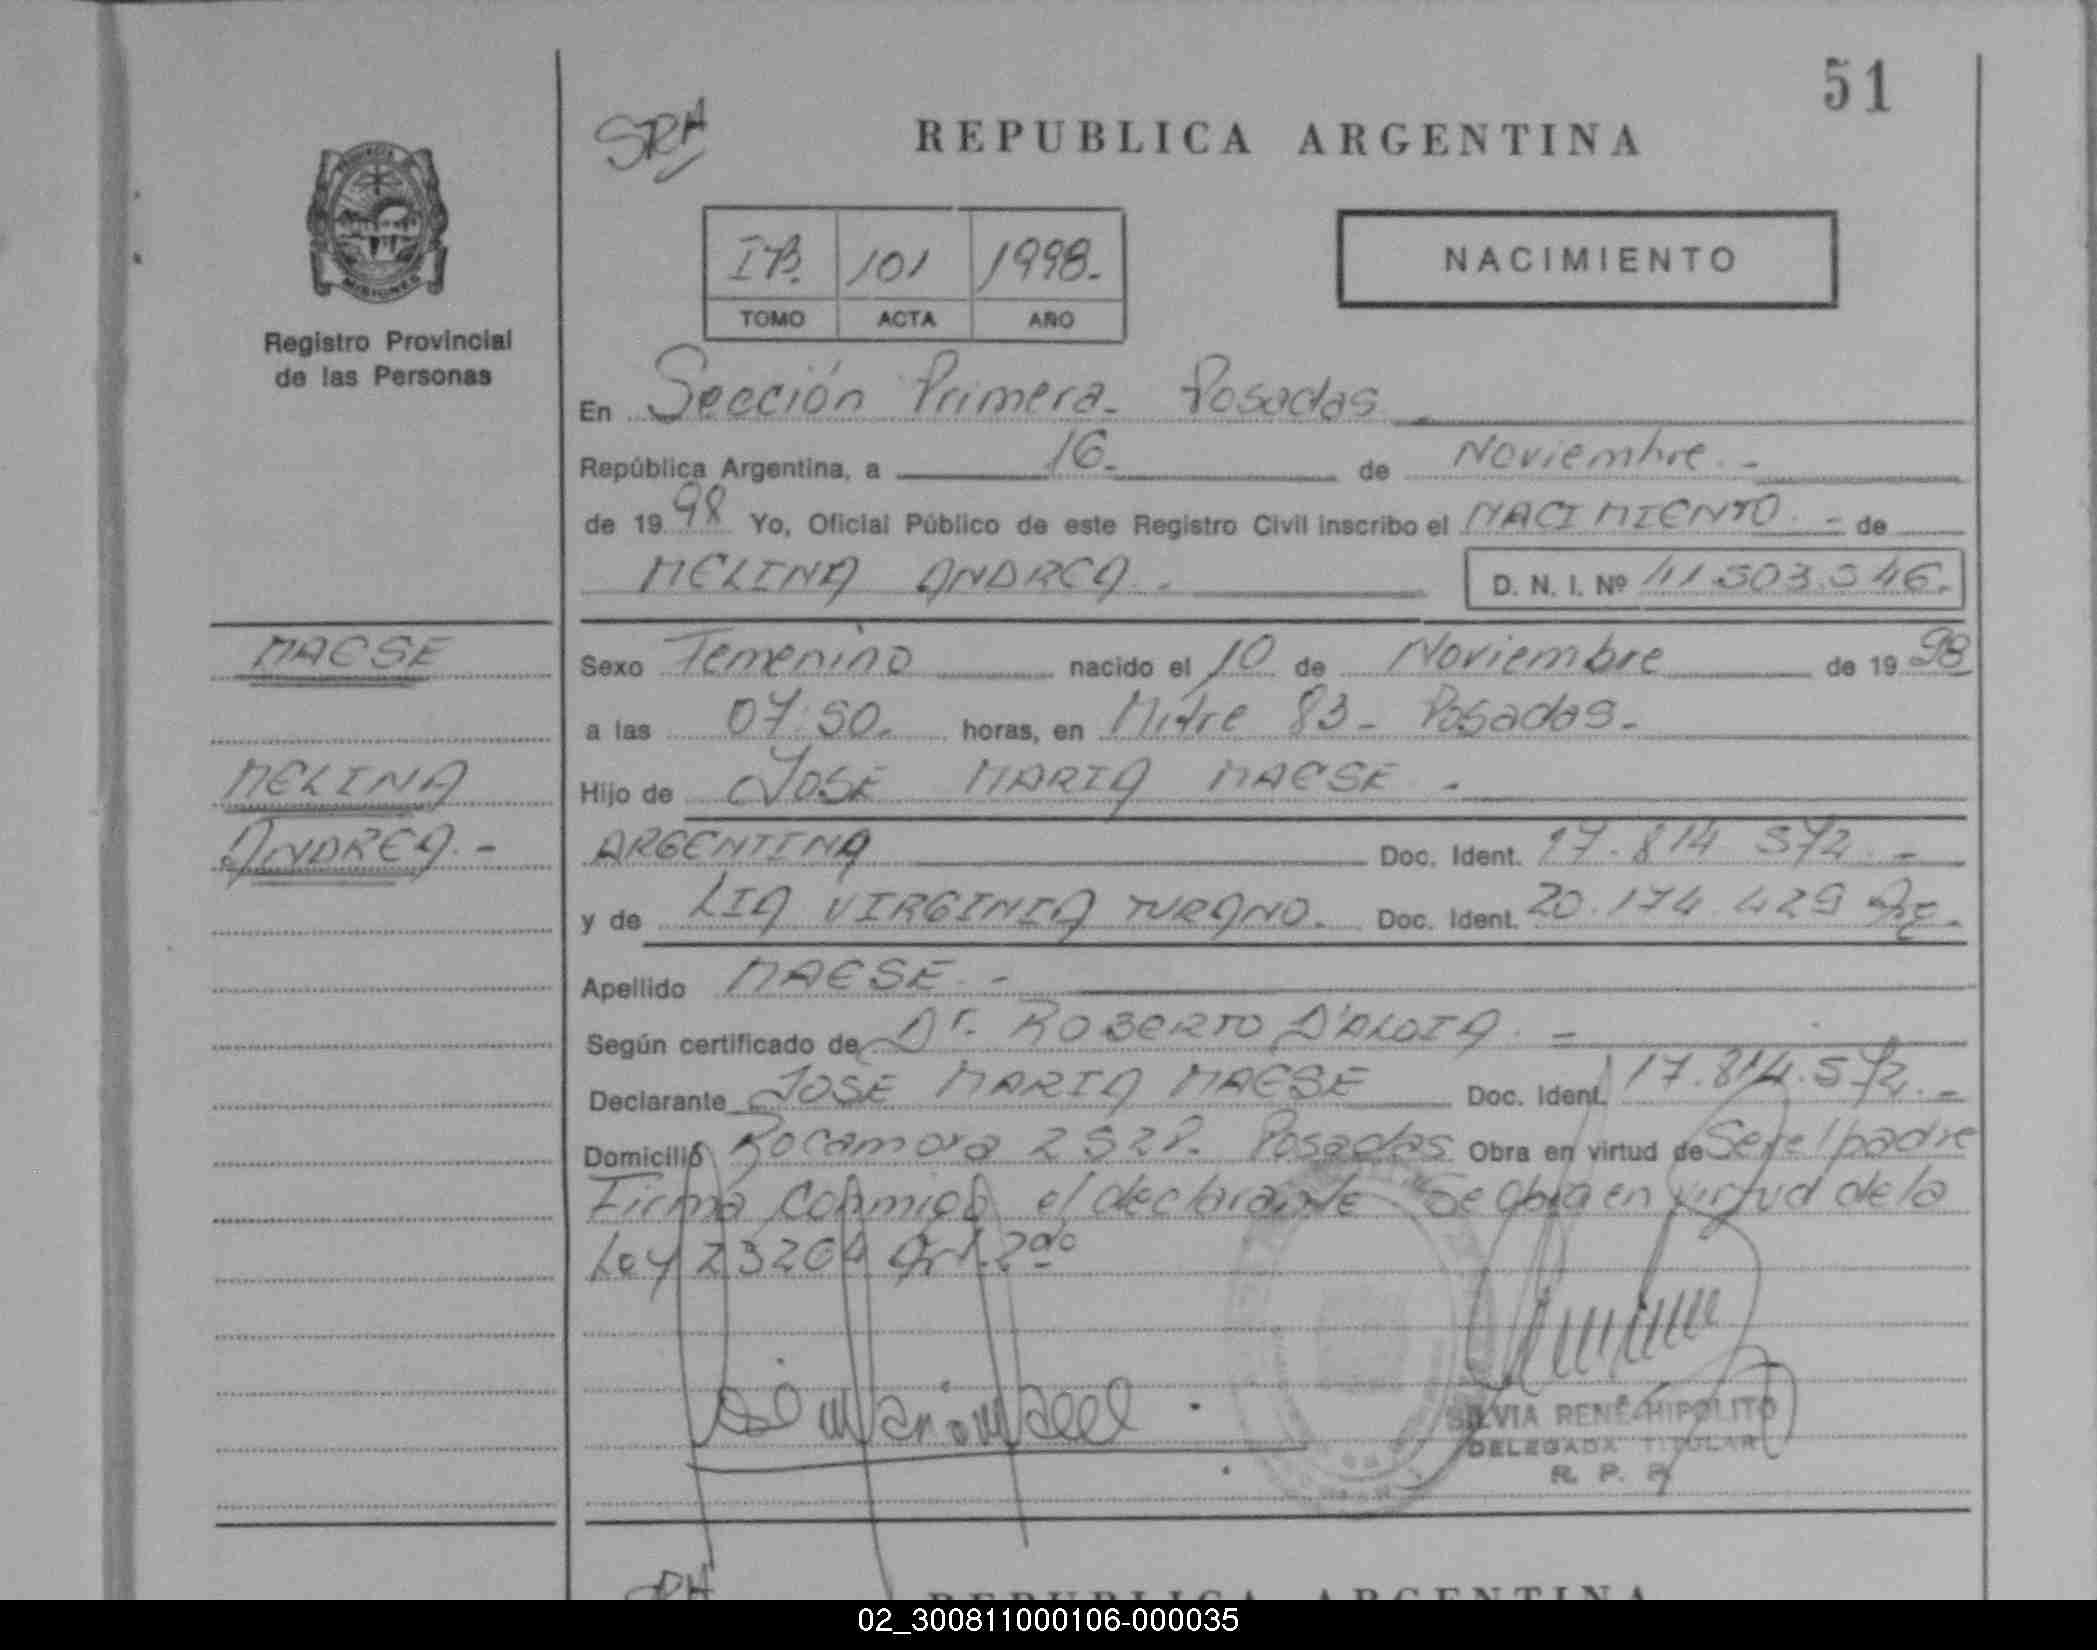 51
SRH
REPUBLICA ARGENTINA
PROVINCIA
MISIONES
Registro Provincial
de las Personas
IB. 101 1998.-
TOMO ACTA AÑO
NACIMIENTO
En Sección Primera- Posadas
República Argentina, a 16- de Noviembre.-
de 19 98 Yo, Oficial Público de este Registro Civil inscribo el NACIMIENTO.- de
MELINA ANDREA.- D. N. I. Nº 41.503.546.
MAESE
MELINA
ANDREA.-
Sexo Femenino nacido el 10 de Noviembre de 19 98
a las 07:50. horas, en Mitre 83- Posadas.
Hijo de JOSÉ MARIA MAESE.
ARGENTINA Doc. Ident. 17.814.572.-
y de LIA VIRGINIA TURANO. Doc. Ident. 20.174.429 Arg.
Apellido MAESE.-
Según certificado de Dr. ROBERTO D'ALOIA.-
Declarante JOSÉ MARIA MAESE Doc. Ident. 17.814.572.-
Domicilio Rocamora 2528. Posadas Obra en virtud de Ser el padre
Firma conmigo el declarante Se Obra en virtud de la
Ley 23264 Art. 2do
SILVIA RENÉ HIPOLITO
DELEGADA TITULAR
R. P. P.
REPUBLICA ARGENTINA
02_300811000106-000035